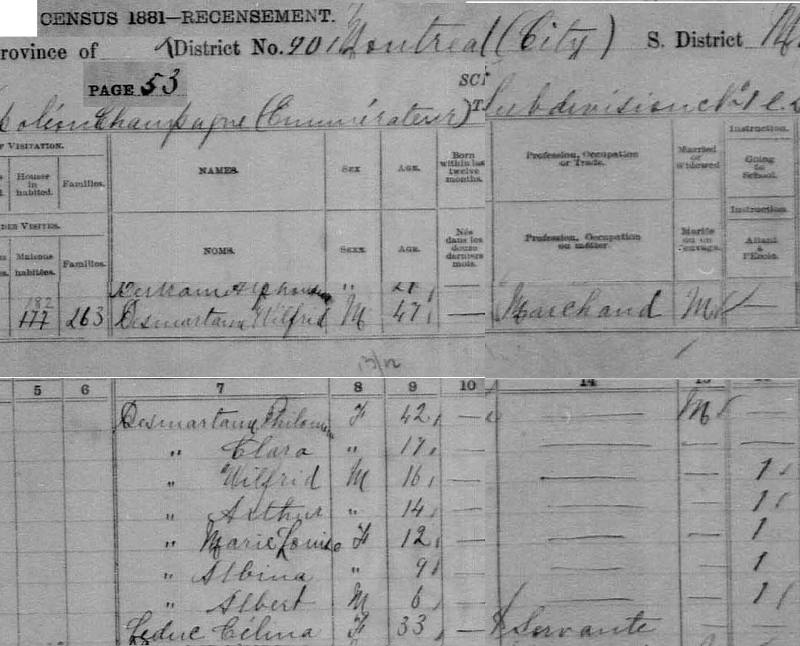 CENSUS 1881—RECENSEMENT.
rovince of District No. 90 Montreal (City) S. District M
PAGE 53
SC
Champagne (Enumérateur) T. Subdivision No 1
F VISITATION. Instruction.
Houses in habited. Families. NAMES. SEX AGE. Born within last twelve months. Profession, Occupation or Trade. Married or Widowed Going to School.
DER VISITES. Instruction.
Maisons habitées. Families. NOMS. SEXE AGE. Nés dans les douze derniers mois. Profession, Occupation ou métier. Mariés ou en veuvage. Allant à l'Ecole.
"
182
177 263 Desmarteau Wilfrid M 47 — Marchand M —
13/12
5 6 7 8 9 10 14
Desmarteau Philomène F 42 — — M —
" Clara " 17 — — — —
" Wilfrid M 16 — — — 1
" Arthur " 14 — — — 1
" Marie Louise F 12 — — — 1
" Albina " 9 — — — 1
" Albert M 6 — — — 1
Leduc Célina F 33 — Servante — —